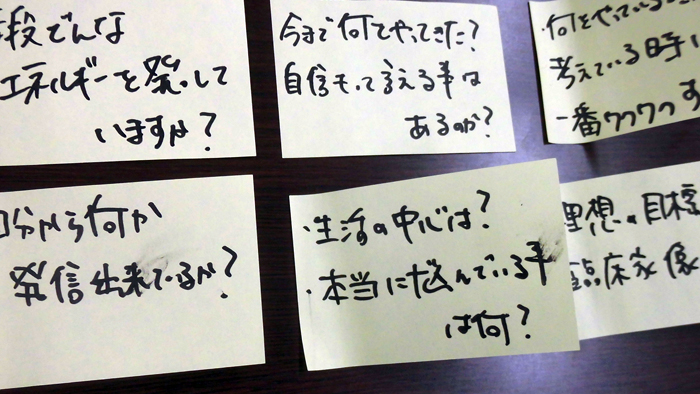 段どんな
エネルギーを発して
いますか？
今まで何をやってきた？
自信もって言える事は
あるのか？
・何をやっている
考えている時
一番ワクワクす
自分から何か
発信出来ているか？
・生活の中心は？
・本当に悩んでいる事
は何？
理想の目標
臨床家像